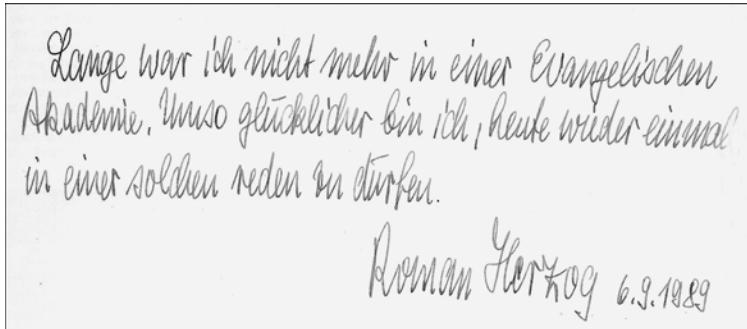 Lange war ich nicht mehr in einer Evangelischen
Akademie. Umso glücklicher bin ich, heute wieder einmal
in einer solchen reden zu dürfen.
Roman Herzog 6.9.1989